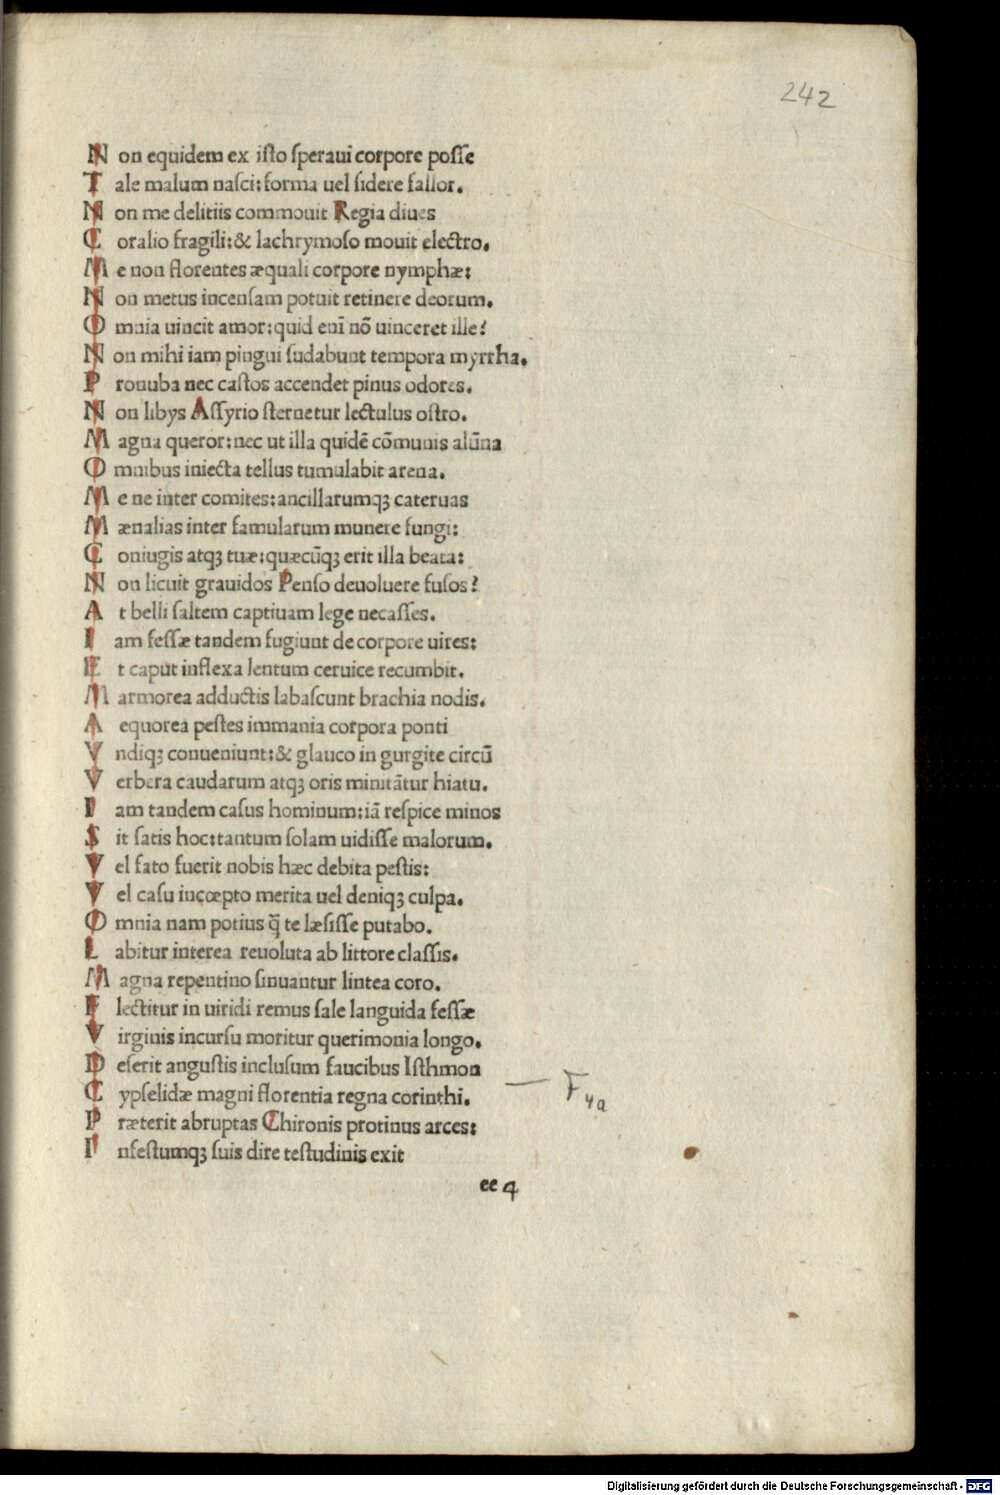 242
N on equidem ex isto speraui corpore posse
T ale malum nasci: forma uel sidere fallor.
N on me delitiis commouit Regia diues
C oralio fragili: & lachrymoso mouit electro.
M e non florentes æquali corpore nymphæ:
N on metus incensam potuit retinere deorum.
O mnia uincit amor: quid enī nō uinceret ille?
N on mihi iam pingui sudabunt tempora myrrha.
P ronuba nec castos accendet pinus odores.
N on libys Assyrio sternetur lectulus ostro.
M agna queror: nec ut illa quidē cōmunis alūna
O mnibus iniecta tellus tumulabit arena.
M e ne inter comites: ancillarumqꝫ cateruas
M ænalias inter famularum munere fungi:
C oniugis atqꝫ tuæ: quæcūqꝫ erit illa beata:
N on licuit grauidos Penso deuoluere fusos?
A t belli saltem captiuam lege necasses.
I am fessæ tandem fugiunt de corpore uires:
E t caput inflexa lentum ceruice recumbit.
M armorea adductis labascunt brachia nodis.
A equorea pestes immania corpora ponti
V ndiqꝫ conueniunt: & glauco in gurgite circū
V erbera caudarum atqꝫ oris minitātur hiatu.
I am tandem casus hominum: iā respice minos
S it satis hoc: tantum solam uidisse malorum.
V el fato fuerit nobis hæc debita pestis:
V el casu incœpto merita uel deniqꝫ culpa.
O mnia nam potius q̄ te læsisse putabo.
L abitur interea reuoluta ab littore classis.
M agna repentino sinuantur lintea coro.
F lectitur in uiridi remus sale languida fessæ
V irginis incursu moritur querimonia longo.
D eserit angustis inclusum faucibus Isthmon
C ypselidæ magni florentia regna corinthi.
P ræterit abruptas Chironis protinus arces:
I nfestumqꝫ suis dire testudinis exit
ee 4
— F 4a
Digitalisierung gefördert durch die Deutsche Forschungsgemeinschaft - DFG